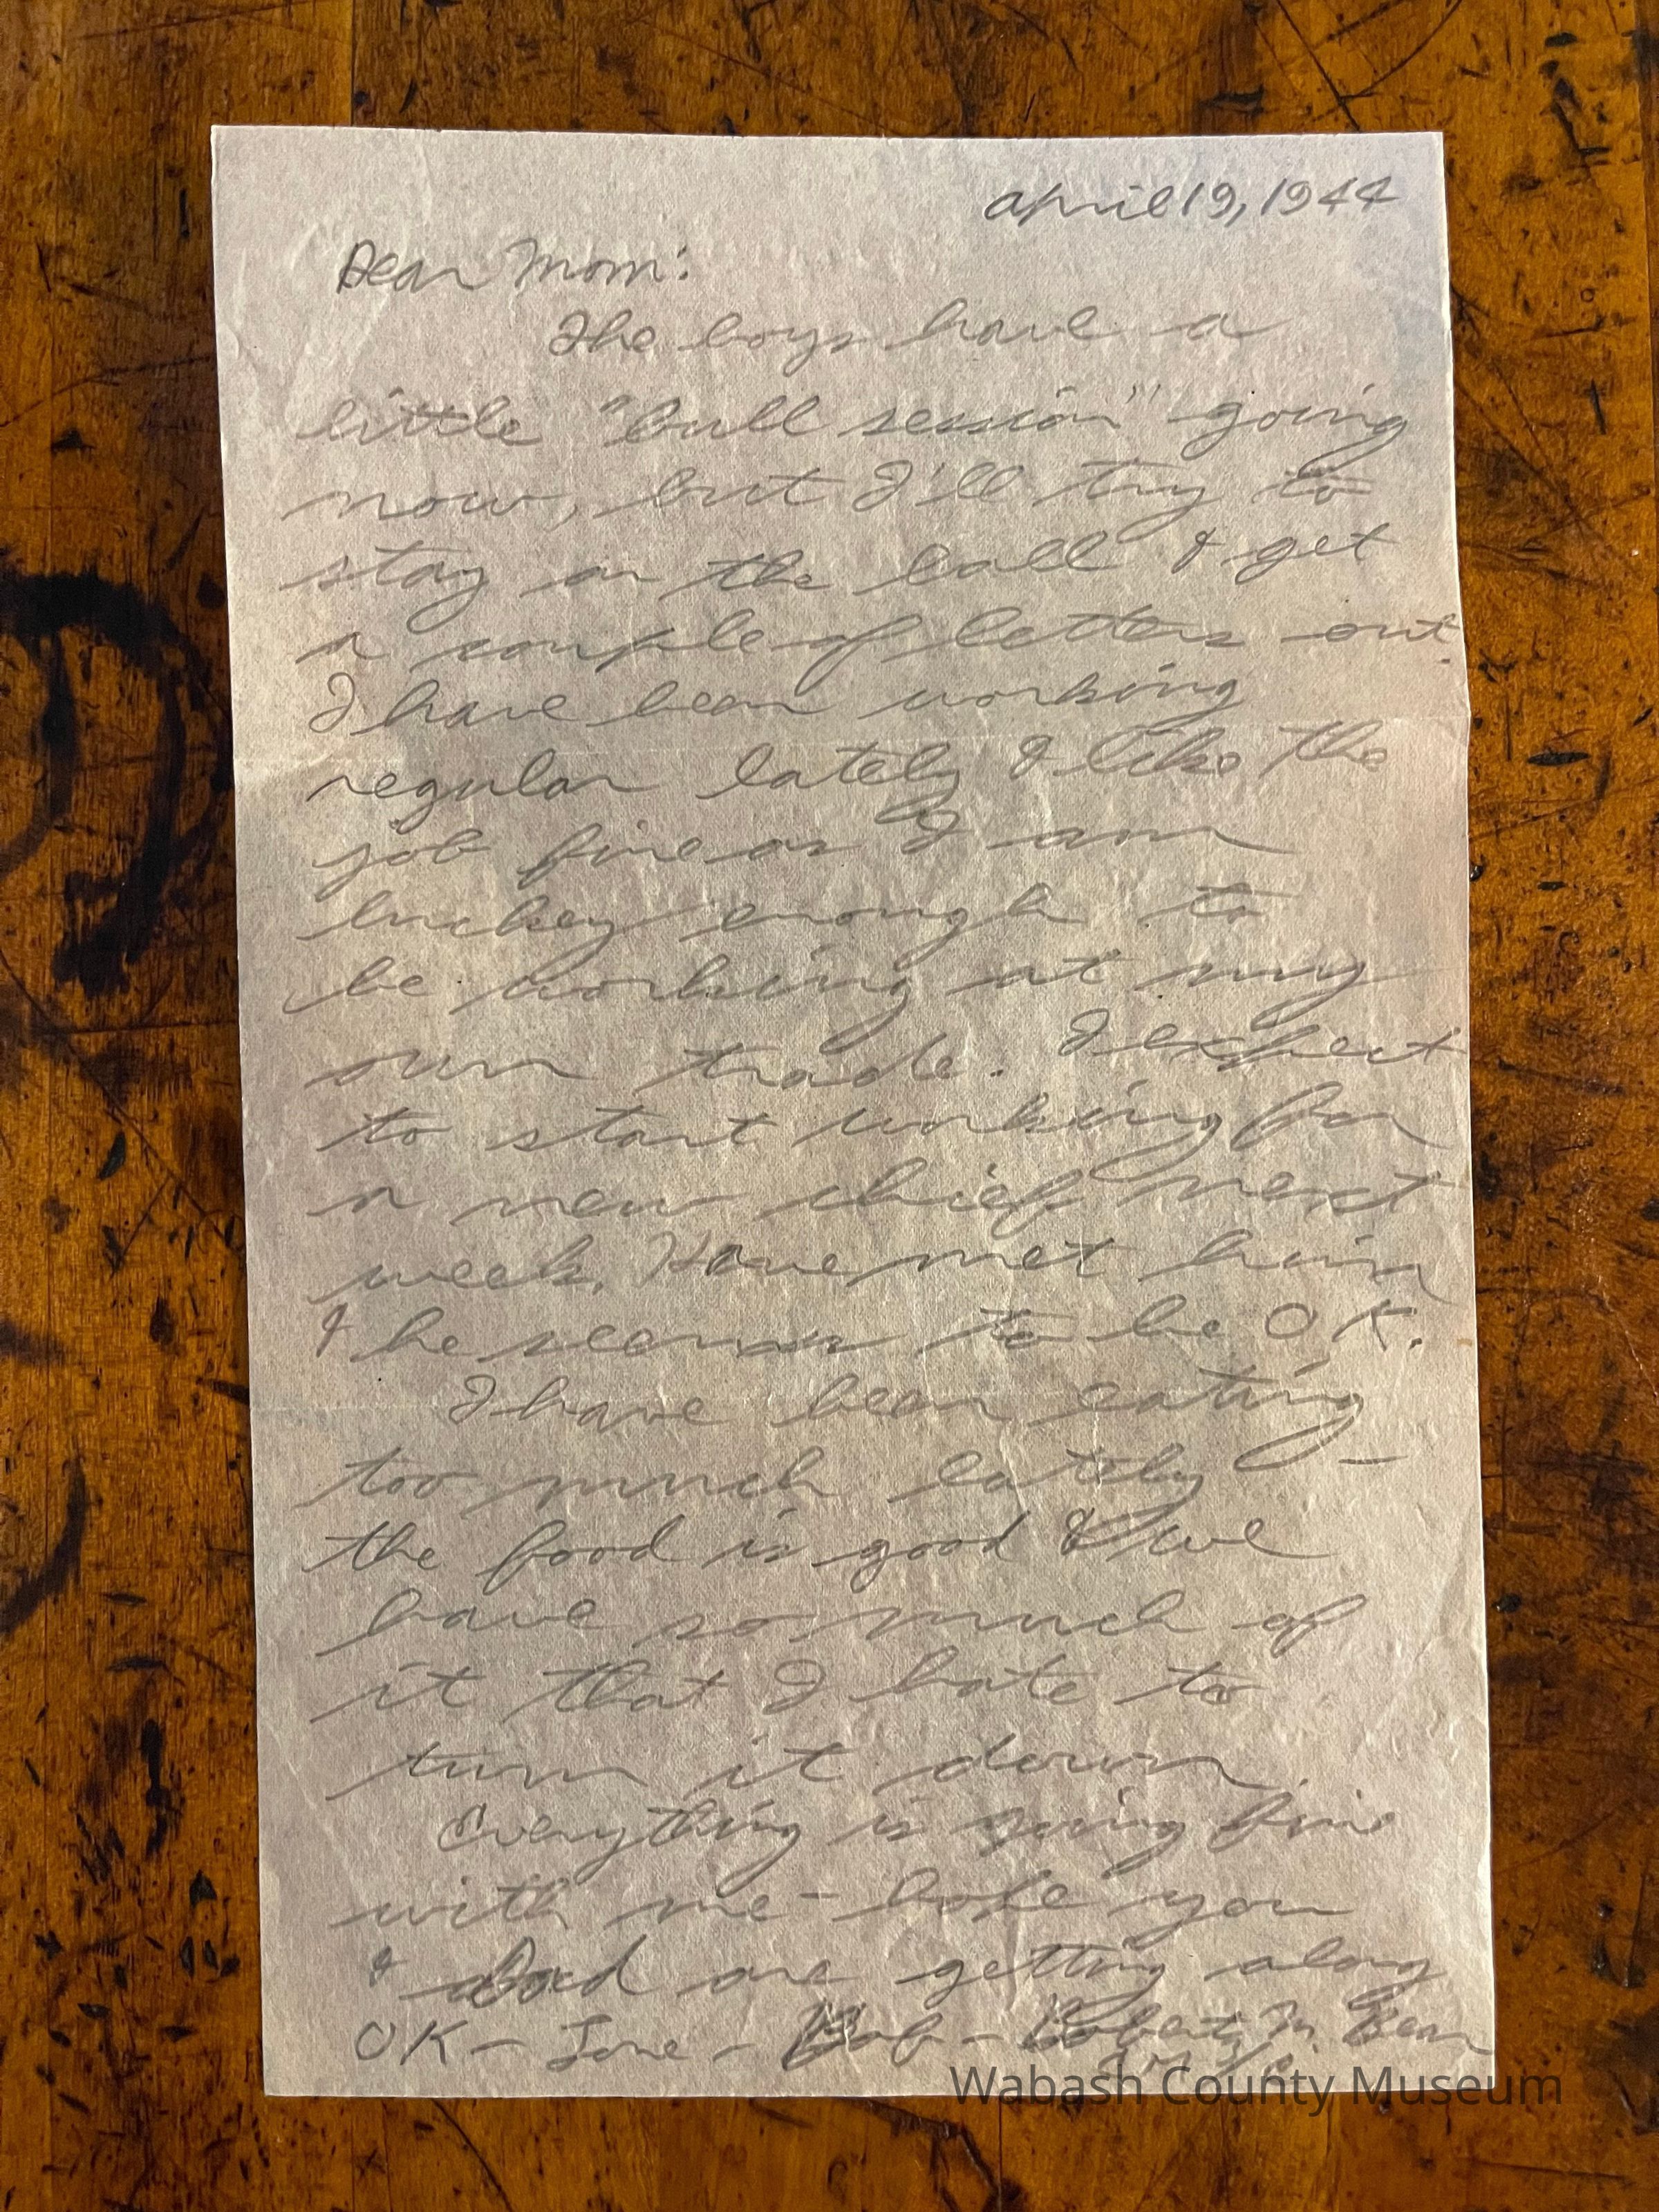 april 19, 1944
Dear Mom:
The boys have a
little "bull session" going
now, but I'll try to
stay on the ball & get
a couple of letters out.
I have been working
regular lately & like the
job fine as I am
luckey enough to
be working at my
own trade. I expect
to start working for
a new chief next
week. Have met him
& he seems to be O K.
I have been eating
too much lately –
the food is good & we
have so much of
it that I hate to
turn it down.
Everything is going fine
with me – hope you
& Dad are getting along
OK – Love – Bob – Robert M. Bear
Wabash County Museum